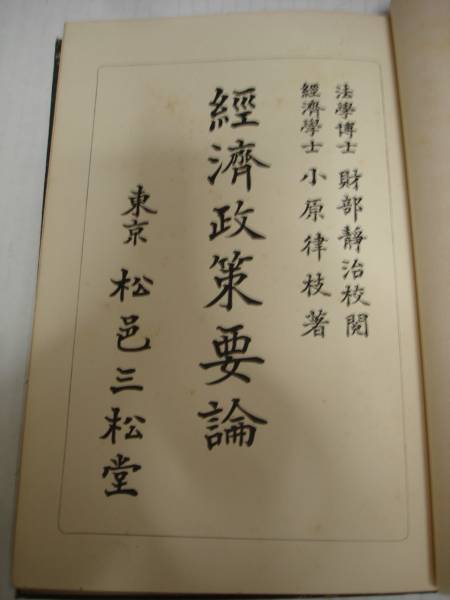 法學博士 財部靜治校閱
經濟學士 小原律枝著
經濟政策要論
東京 松邑三松堂